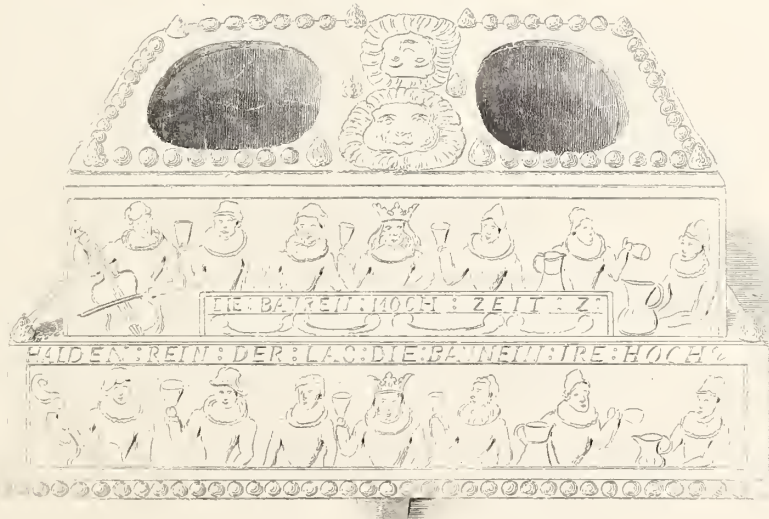 DIE : BAUREN : HOCH : ZEIT : Z:
HALDEN : REIN : DER : LAS : DIE : BAUNEIN : IRE : HOCH